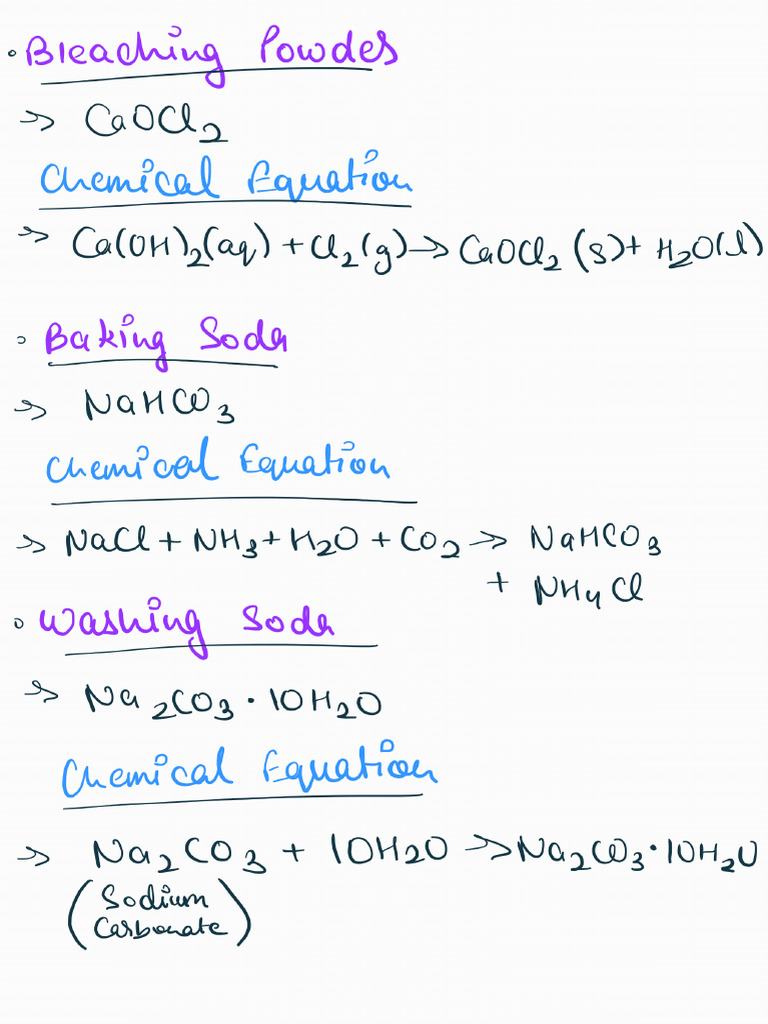 • Bleaching Powder
→ CaOCl2
Chemical Equation
→ Ca(OH)2(aq) + Cl2(g) → CaOCl2 (s) + H2O(l)
• Baking Soda
→ NaHCO3
Chemical Equation
→ NaCl + NH3 + H2O + CO2 → NaHCO3
+ NH4Cl
• Washing Soda
→ Na2CO3 · 10H2O
Chemical Equation
→ Na2CO3 + 10H2O → Na2CO3 · 10H2O
(Sodium
Carbonate)